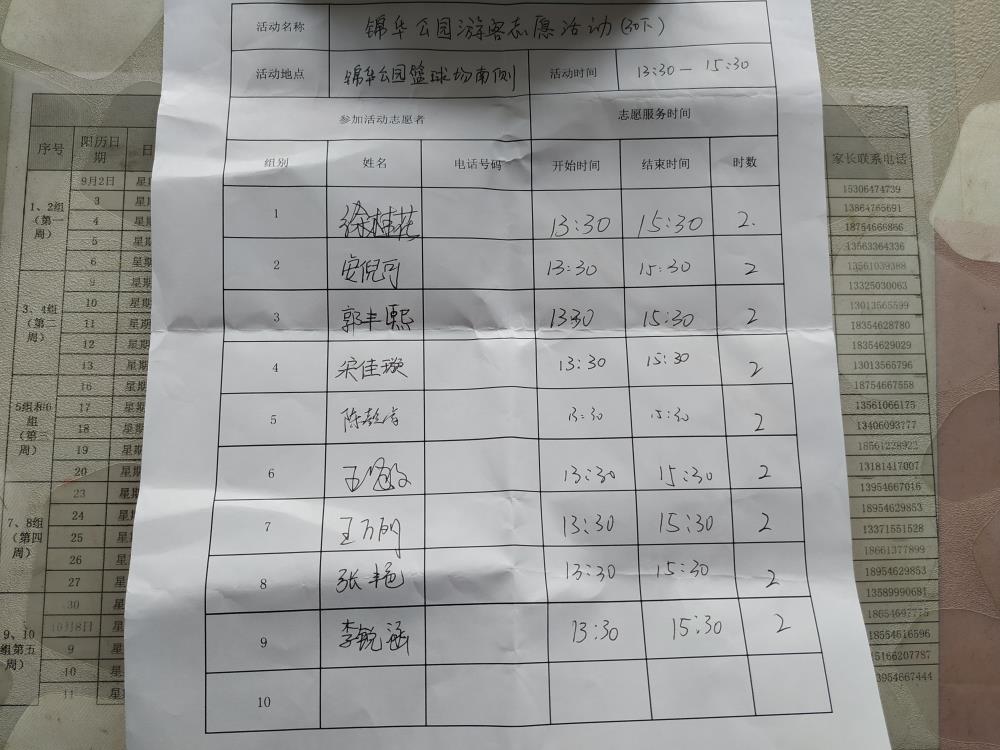 活动名称 锦华公园游客志愿活动(30下)
活动地点 锦华公园篮球场南侧 活动时间 13:30 — 15:30
参加活动志愿者 志愿服务时间
组别 姓名 电话号码 开始时间 结束时间 时数
1 徐桂花 13:30 15:30 2.
2 安倪可 13:30 15:30 2
3 郭丰熙 1330 15:30 2
4 宋佳璇 13:30 15:30 2
5 13:30 15:30 2
6 13:30 15:30 2
7 王万明 13:30 15:30 2
8 张艳 13:30 15:30 2
9 李锐涵 13:30 15:30 2
10
序号 阳历日期
1、2组(第一周)
9月2日
3
4
5
6
3、4组(第二周)
9
10
11
12
13
5组和6组(第三周)
16
17
18
19
20
7、8组(第四周)
23
24
25
26
27
9、10组第五周)
30
10月8日
9
10
11
家长联系电话
15306474739
13864765691
18754666866
13563364336
13561039388
13325030063
13013565599
18354628780
18354629029
13013565796
18754667558
13561066175
13406093777
18561228922
13181417007
13954667016
18954629853
13371551528
18661377899
18954629853
13589990681
18554616596
15166207787
13954667444